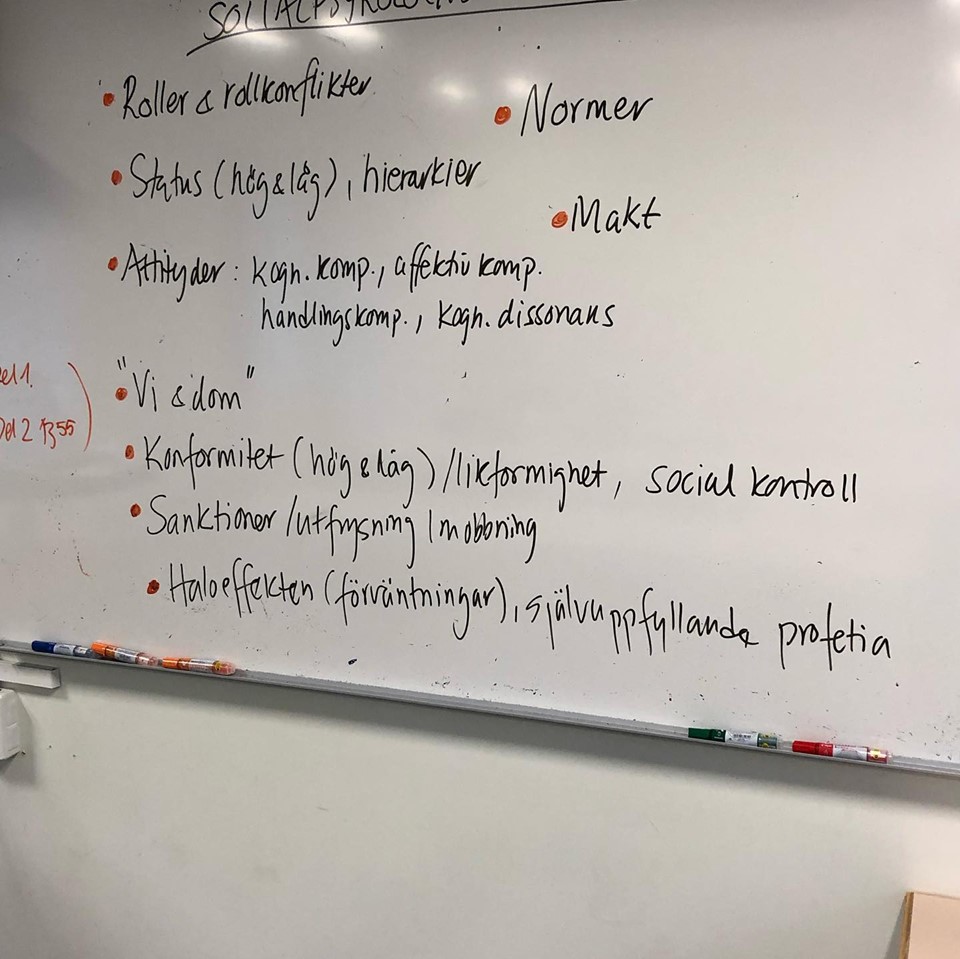 SOCIALPSYKOLOGI
• Roller & rollkonflikter
• Normer
• Status (hög & låg), hierarkier
• Makt
• Attityder: kogn. komp., affektiv komp.
handlingskomp., kogn. dissonans
• "Vi & dom"
Del 2 1355
• Konformitet (hög & låg)/likformighet, social kontroll
• Sanktioner/utfrysning/mobbning
• Haloeffekten (förväntningar), självuppfyllande profetia